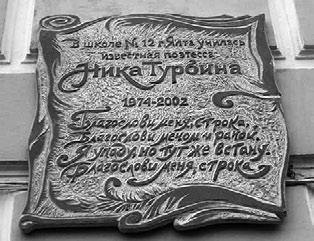 В школе № 12 г. Ялта училась
известная поэтесса
Ника Турбина
1974-2002
Благослови меня, строка,
Благослови мечом и раной,
Я упаду, но тут же встану.
Благослови меня, строка